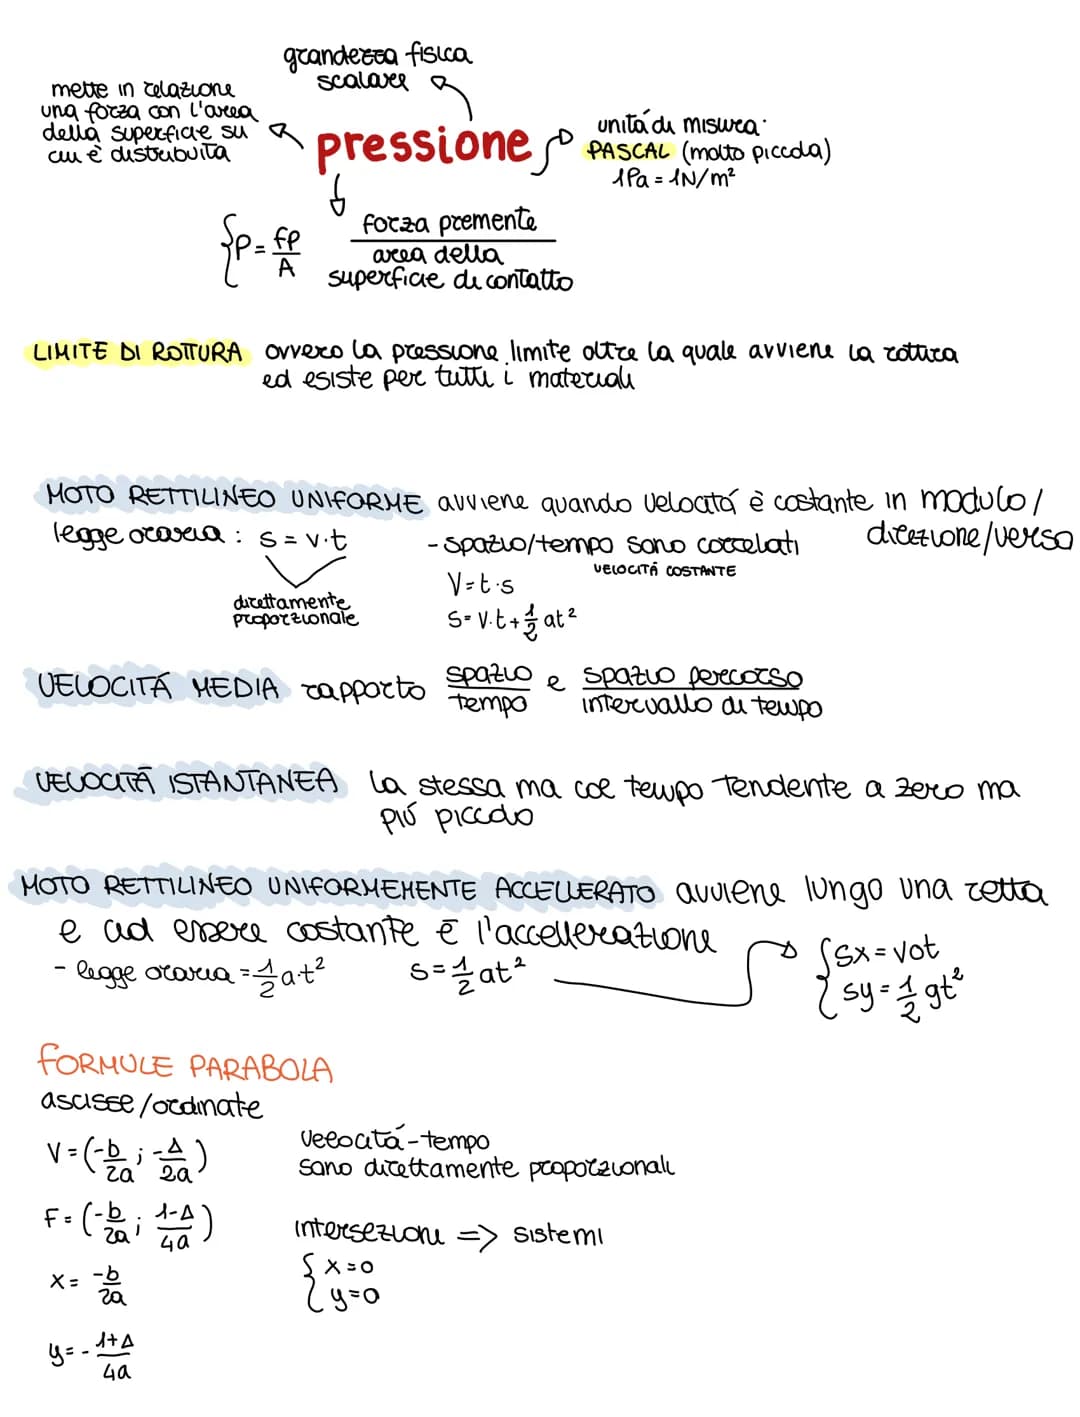 grandezza fisica
scalare
mette in relazione
una forza con l'area
della superficie su
cui è distribuita
pressione
unitá di misura:
PASCAL (molto piccola)
1Pa = 1N/m²
P = fp/A
forza premente
area della
superficie di contatto
LIMITE DI ROTTURA ovvero la pressione limite oltre la quale avviene la rottura
ed esiste per tutti i materiali
MOTO RETTILINEO UNIFORME avviene quando velocitá è costante in modulo/
direzione/verso
legge oraria : s = v·t
direttamente
proporzionale
- spazio/tempo sono correlati
VELOCITÁ COSTANTE
V=t·s
S= V·t+½ at²
VELOCITÁ MEDIA rapporto spazio/tempo e spazio percorso/intervallo di tempo
VELOCITÁ ISTANTANEA la stessa ma col tempo tendente a zero ma
piú piccolo
MOTO RETTILINEO UNIFORMEMENTE ACCELLERATO avviene lungo una retta
e ad essere costante è l'accellerazione
- legge oraria = ½ a·t² s=½ at²
{ Sx = vot
sy = ½ gt²
FORMULE PARABOLA
ascisse/ordinate
V = (-b/2a ; -Δ/2a)
F = (-b/2a ; 1-Δ/4a)
x = -b/2a
y = - 1+Δ/4a
velocitá-tempo
sono direttamente proporzionali
intersezioni => sistemi
{ x=0
y=0